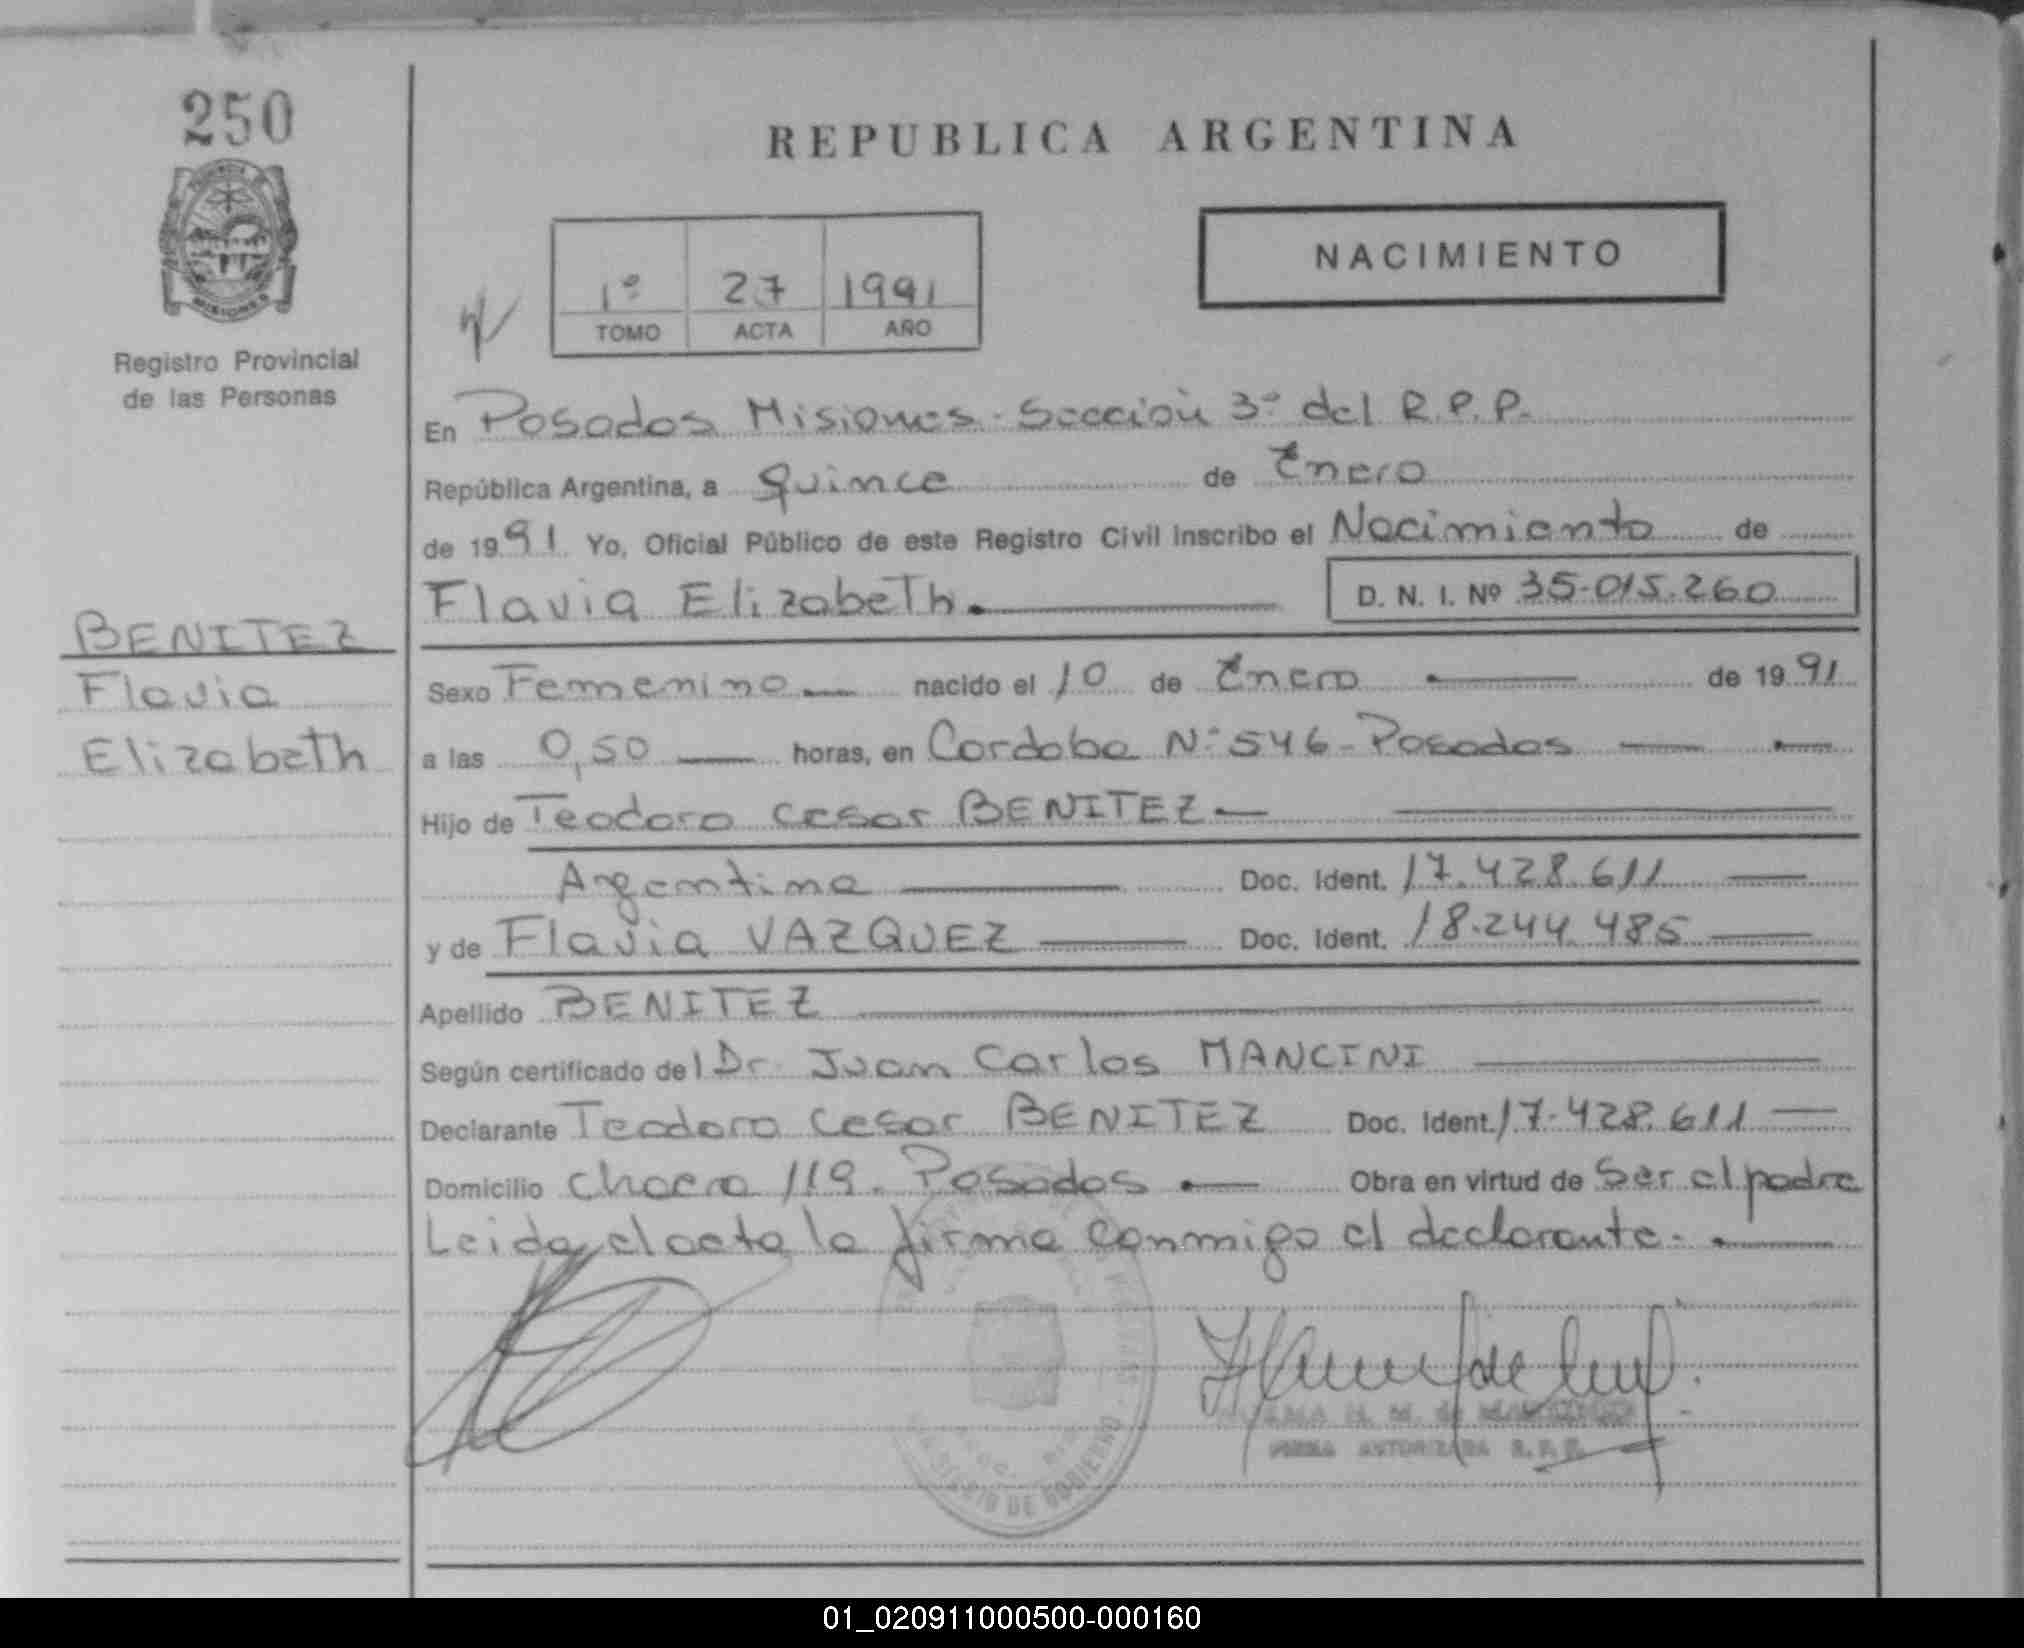 250
REPUBLICA ARGENTINA
NACIMIENTO
1º 27 1991
TOMO ACTA AÑO
Registro Provincial
de las Personas
En Posadas Misiones - Sección 3º del R.P.P.
República Argentina, a quince de Enero
de 1991 Yo, Oficial Público de este Registro Civil inscribo el Nacimiento de
Flavia Elizabeth.
D. N. I. Nº 35.015.260
BENITEZ
Flavia
Elizabeth
Sexo Femenino nacido el 10 de Enero de 1991
a las 0,50 horas, en Cordoba Nº 546 - Posadas
Hijo de Teodoro Cesar BENITEZ
Argentina Doc. Ident. 17.428.611
y de Flavia VAZQUEZ Doc. Ident. 18.244.485
Apellido BENITEZ
Según certificado del Dr. Juan Carlos MANCINI
Declarante Teodoro Cesar BENITEZ Doc. Ident. 17.428.611
Domicilio Chacra 119. Posadas Obra en virtud de Ser el padre
Leida el acta la firma conmigo el declarante.
FIRMA AUTORIZADA R.P.P.
MINISTERIO DE GOBIERNO
01_020911000500-000160